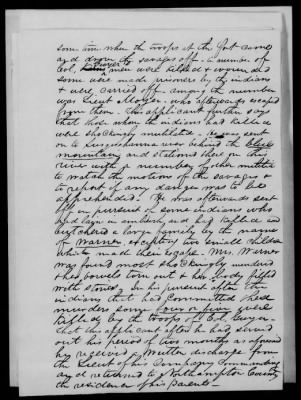 some time when the troops at the Fort came
and drove the savages off - a number of
Col. Boyer men were killed & women and
some were made prisoners by the indians
& were carried off. among the number
was Lieut Moyer. who afterwards escaped
from them. This applicant further says
that those whom the indians had killed
were shockingly mutilated. he was sent
on to Susquehanna river behind the blue
mountain and stationed there on the
river with a number of other militia
to watch the motions of the savages &
to report if any danger was to be
apprehended. He was afterwards sent
off in pursuit of some indians who
had been in ambush, and had killed and
butchered a large family by the name
of Warner, except two small children
which made their escape. Mrs. Warner
was found most shockingly murdered
& her bowels torn out & her body filled
with stones; In his pursuit after the
indians that had committed these
murders some four or five were
killed by the troops of Col. Boyer.
that this applicant after he had served
out his period of two months as aforesaid
he received a written discharge from
the Lieut of his Company Commanding
and returned to Northampton County
the residence of his parents -